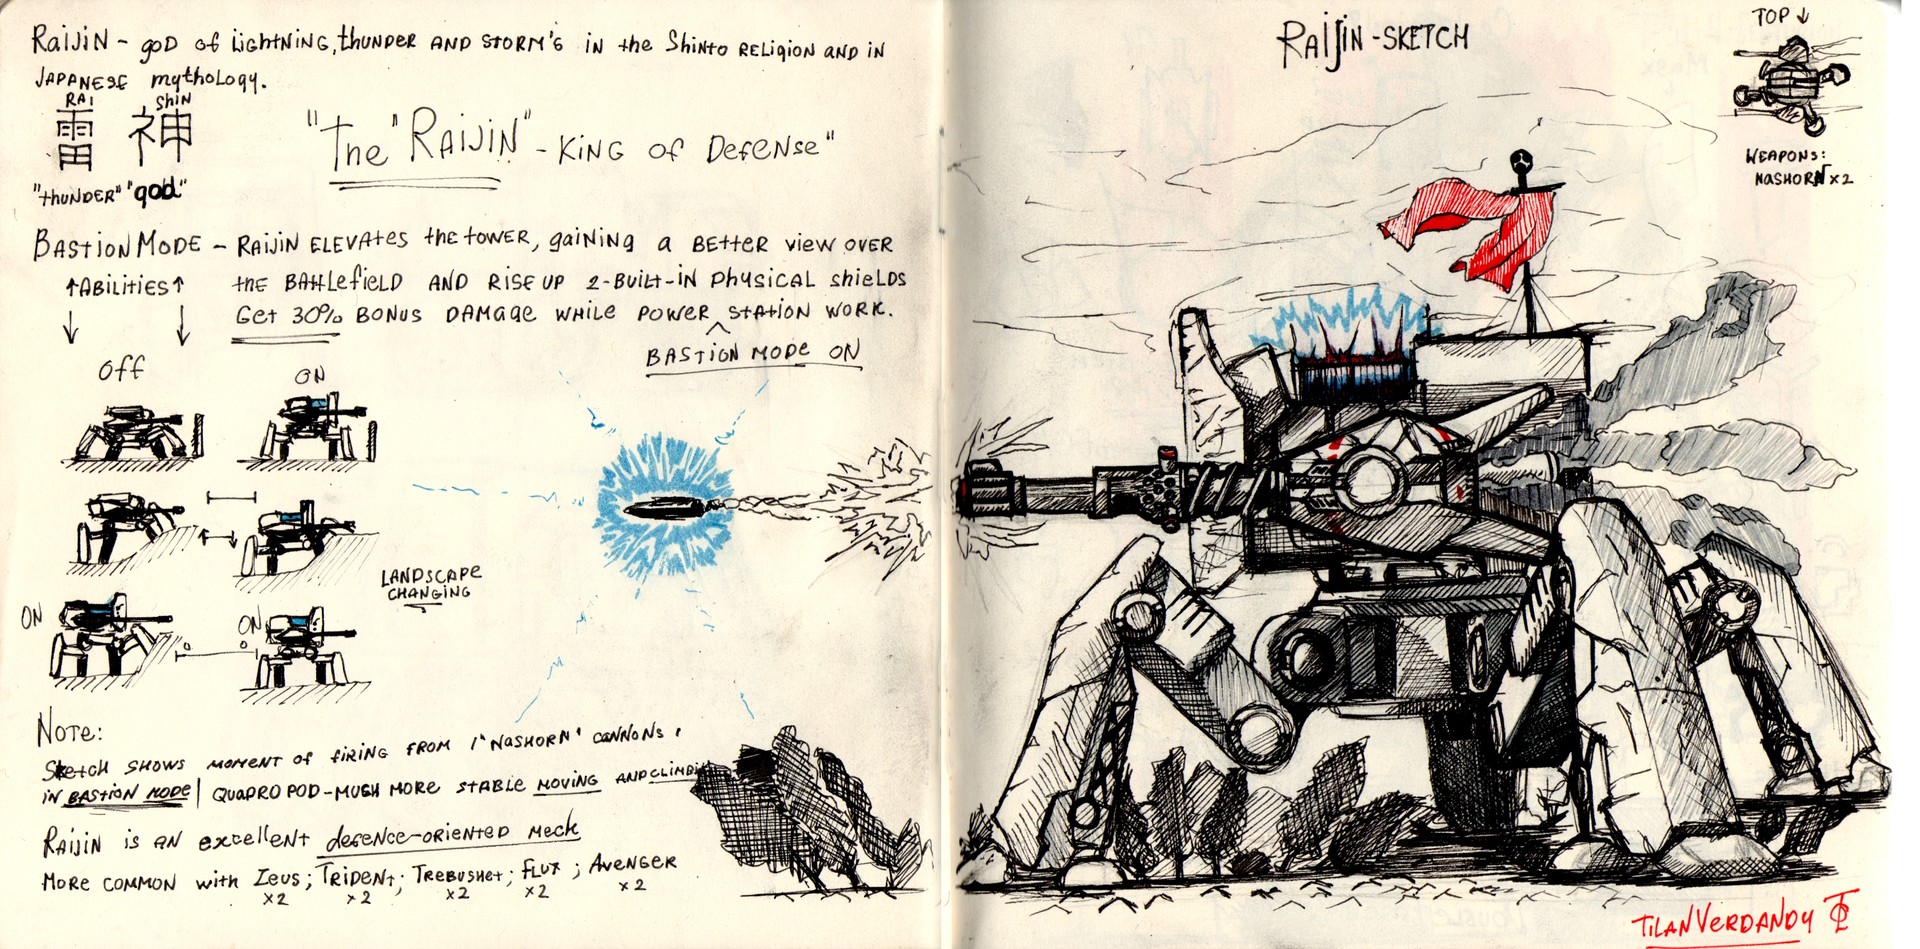 RAIJIN - GOD OF LIGHTNING, THUNDER AND STORM'S IN THE SHINTO RELIGION AND IN
JAPANESE MYTHOLOGY.
RAI SHIN
雷 神
"THUNDER" "GOD"
"THE "RAIJIN" - KING OF DEFENSE"
BASTION MODE - RAIJIN ELEVATES THE TOWER, GAINING A BETTER VIEW OVER
↑ABILITIES↑ THE BATTLEFIELD AND RISE UP 2-BUILT-IN PHYSICAL SHIELDS
GET 30% BONUS DAMAGE WHILE POWER STATION WORK.
BASTION MODE ON
OFF ON
LANDSCAPE
CHANGING
ON ON
NOTE:
SKETCH SHOWS MOMENT OF FIRING FROM 1 "NASHORN" CANNONS,
IN BASTION MODE | QUADROPOD-MUSH MORE STABLE MOVING AND CLIMBING
RAIJIN IS AN EXCELLENT DEFENCE-ORIENTED MECK
MORE COMMON WITH ZEUS; TRIDENT; TREBUSHET; FLUX; AVENGER
x2 x2 x2 x2 x2
RAIJIN-SKETCH
TOP ↓
WEAPONS:
NASHORN x2
TILANVERDANDY